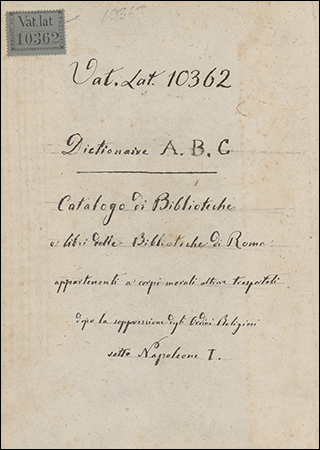 Vat. lat.
10362
Vat. Lat. 10362
Dictionaire A. B. C
Catalogo di Biblioteche
e libri delle Biblioteche di Roma
appartenenti a corpi morali altrove trasportati
dopo la soppressione degli Ordini Religiosi
sotto Napoleone I.